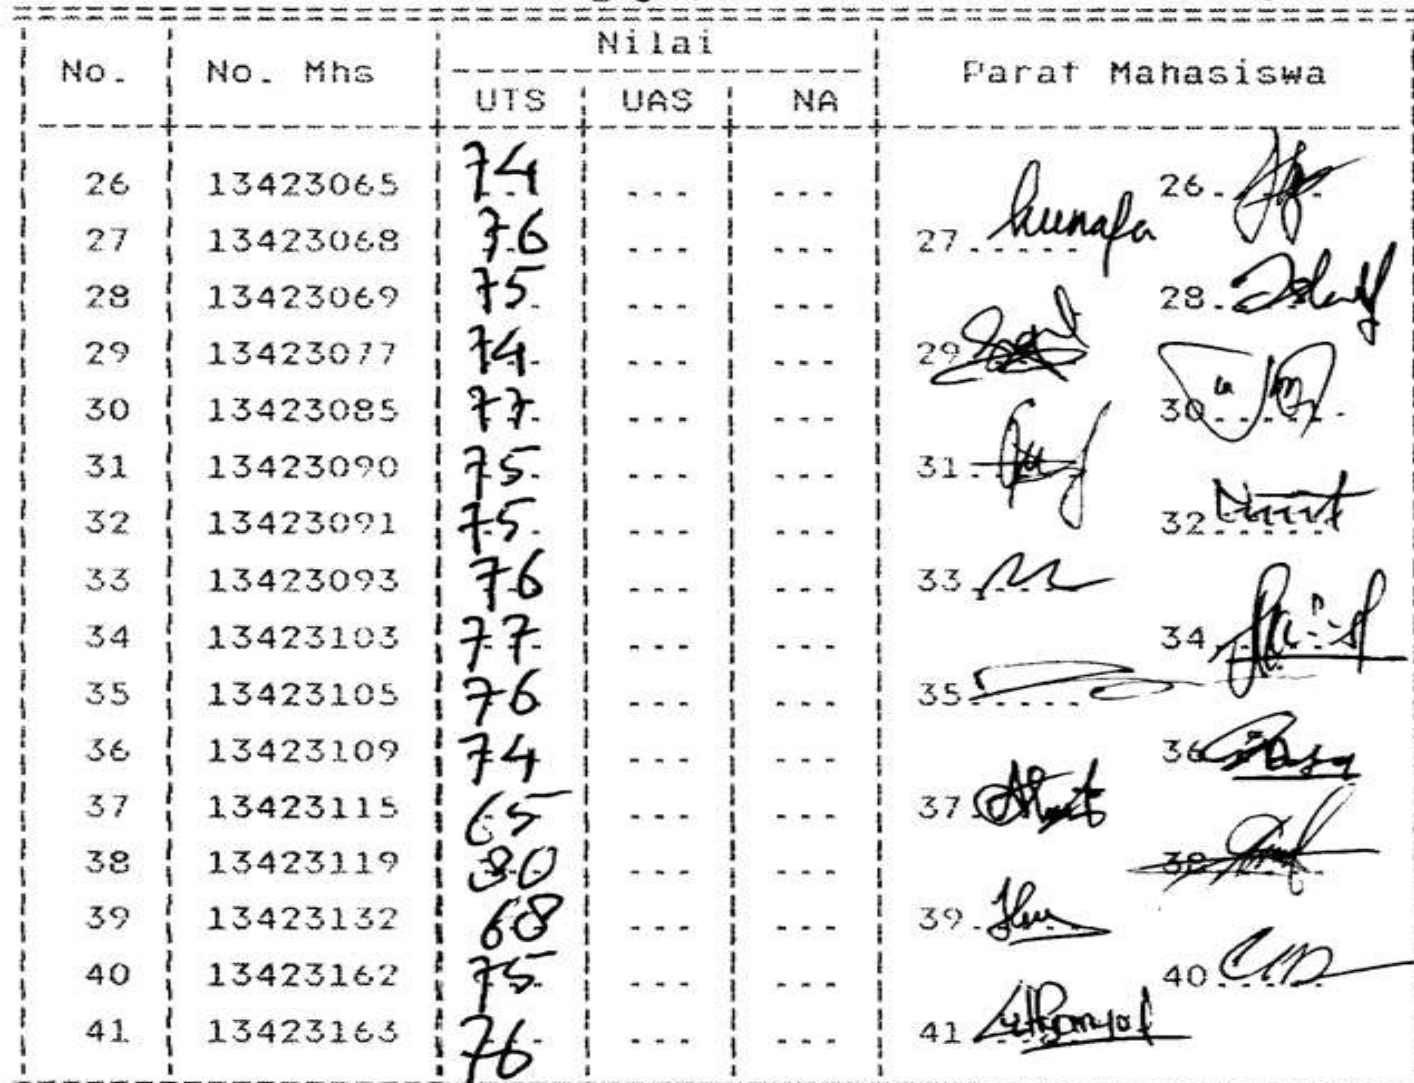 Nilai
No. No. Mhs Paraf Mahasiswa
UTS UAS NA
26 13423065 74 --- --- 26.
27 13423068 76 --- --- 27. kunafa
28 13423069 75 --- --- 28.
29 13423077 74 --- --- 29
30 13423085 77 --- --- 30
31 13423090 75 --- --- 31.
32 13423091 75 --- --- 32
33 13423093 76 --- --- 33
34 13423103 77 --- --- 34
35 13423105 76 --- --- 35
36 13423109 74 --- --- 36
37 13423115 65 --- --- 37
38 13423119 80 --- --- 38
39 13423132 68 --- --- 39.
40 13423162 75 --- --- 40
41 13423163 76 --- --- 41